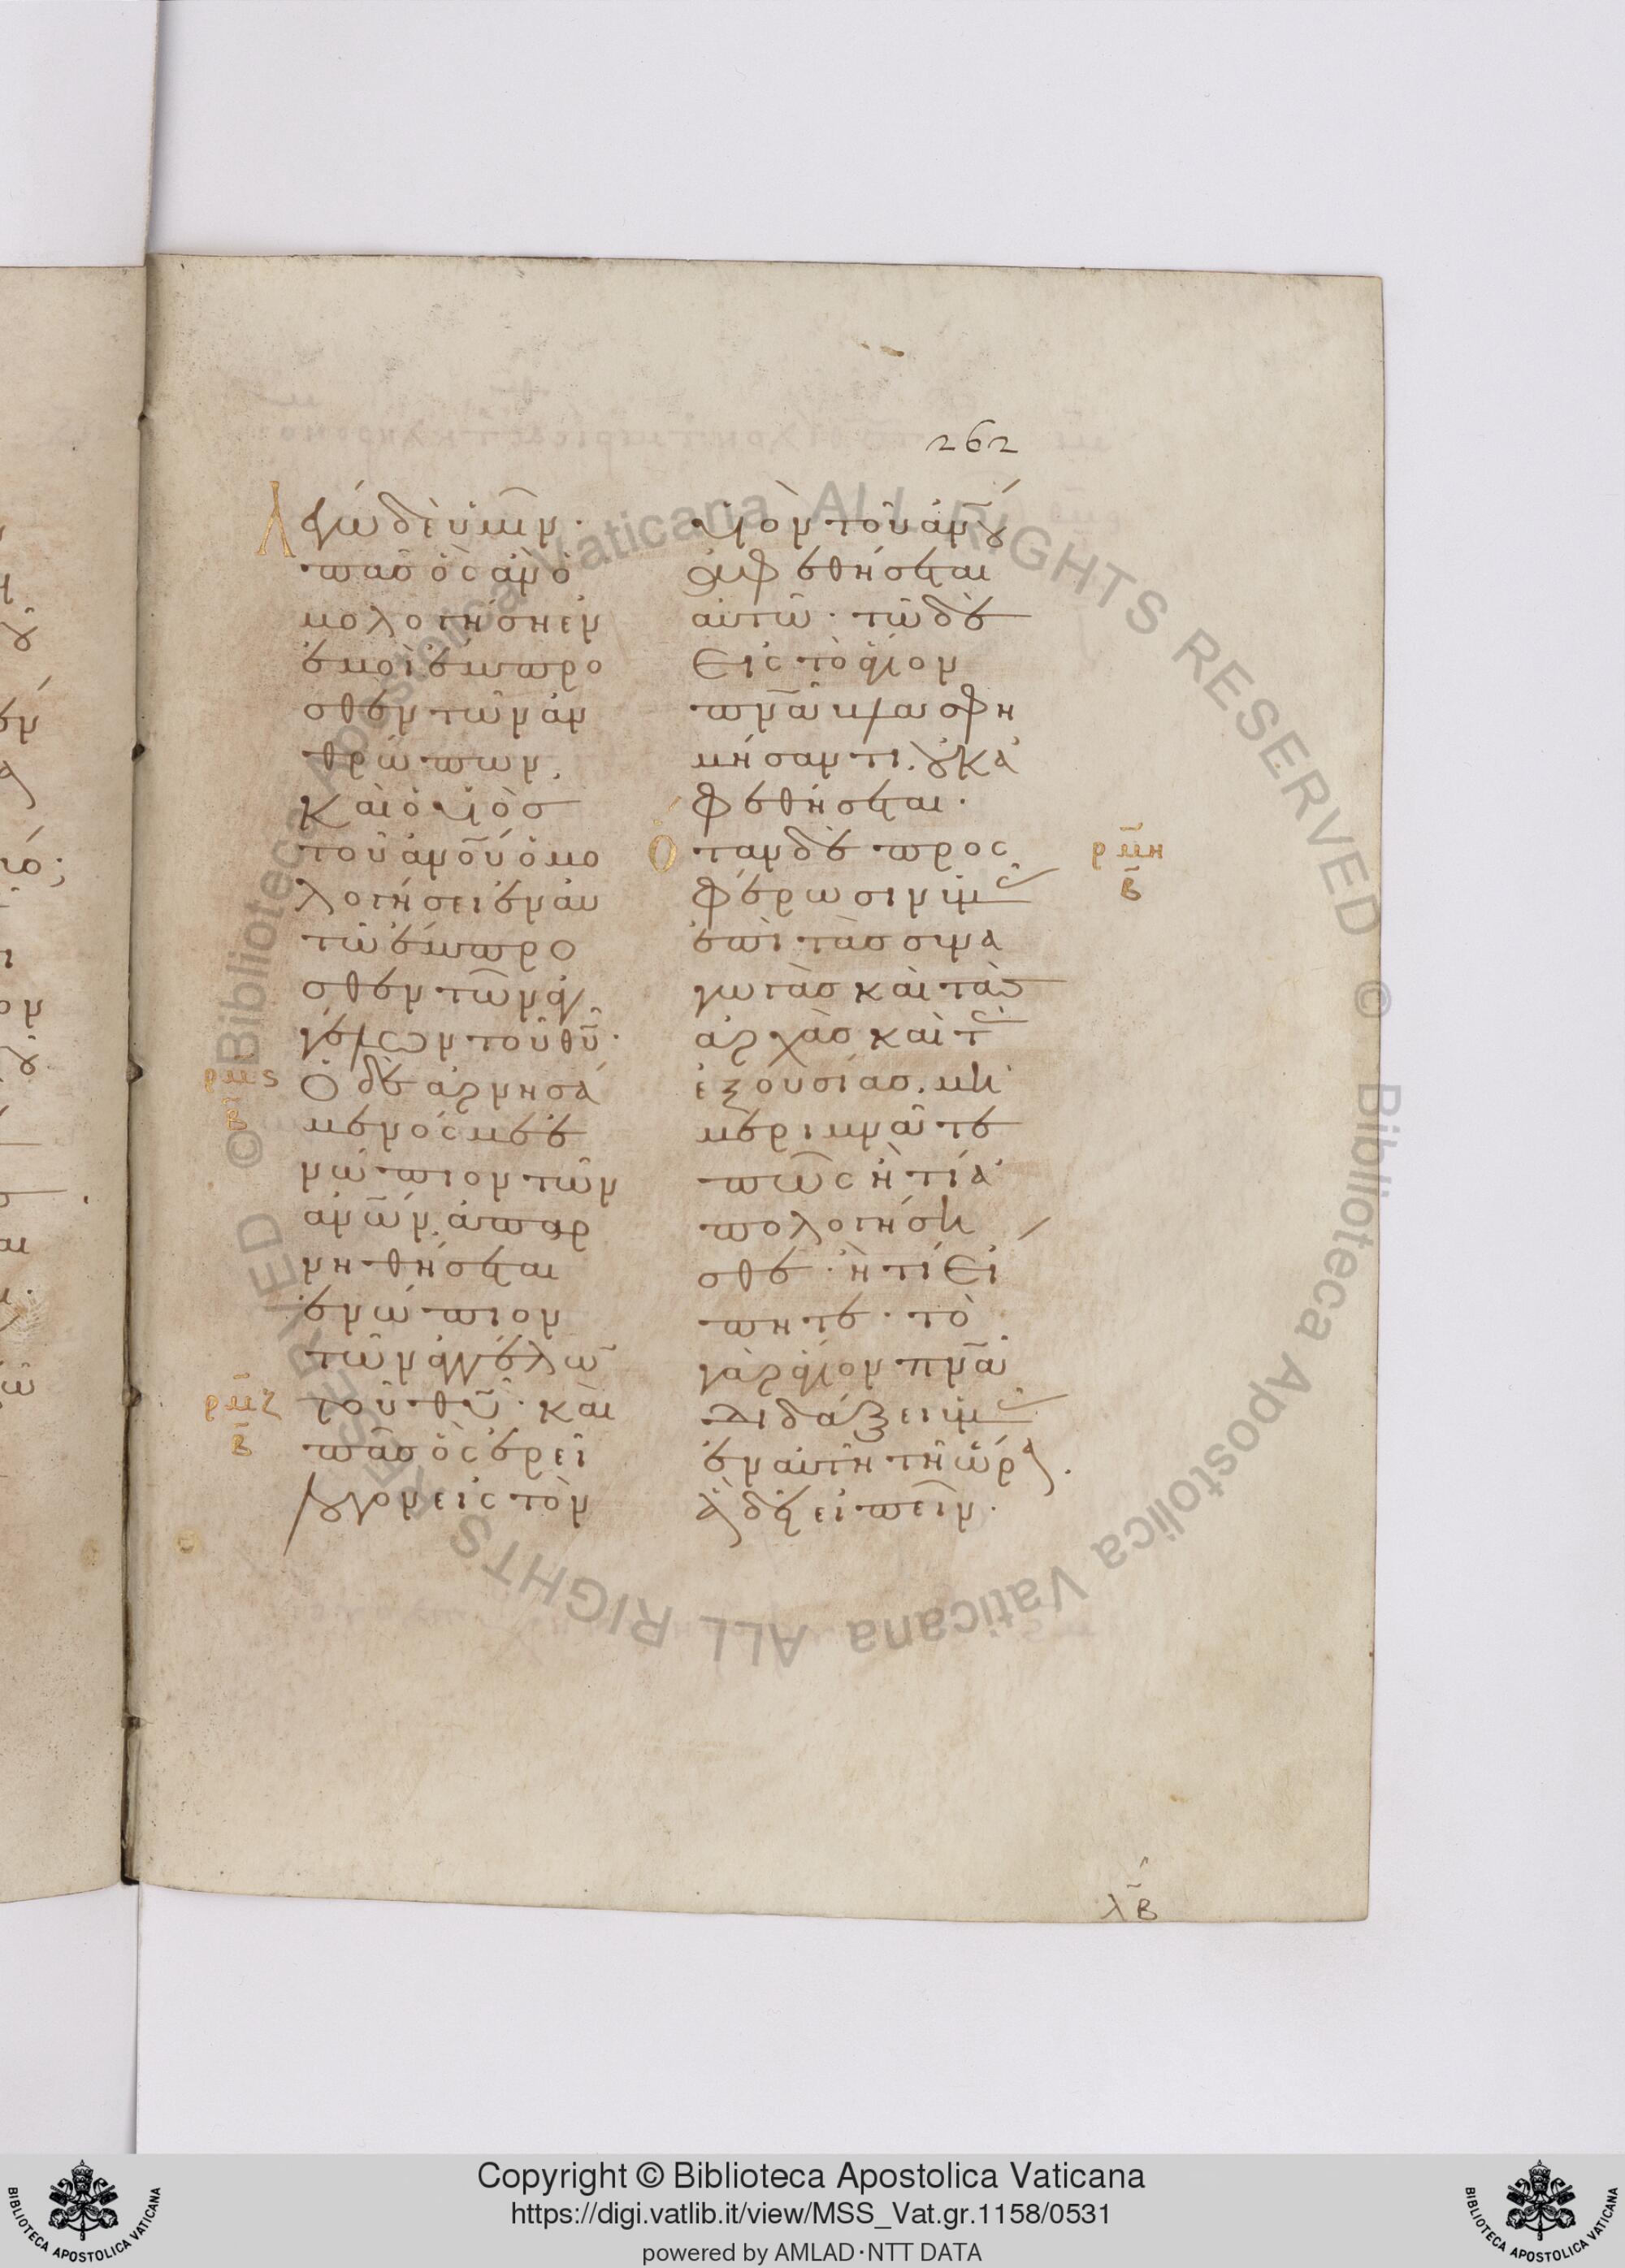 262
Λέγω δὲ ὑμῖν·
πᾶσ ὃς ἂν ὁ
μολογήσῃ ἐν
ἐμοὶ ἔμπρο
σθεν τῶν ἀν
θρώπων,
καὶ ὁ υἱὸσ
τοῦ ἀνο̅ύ ὁμο
λογήσει ἐν αυ
τῶ ἔμπρο
σθεν τῶν ἀγ
γέλων τοῦ θυ̅·
ρμ̅ς
β̅
Ὁ δὲ ἀρνησά
μενός με ἐ
νώπιον τῶν
ἀνω̅ν, ἀπαρ
νηθήσεται
ἐνώπιον
τῶν ἀγγέλω̅
ρμ̅ζ
β̅
τοῦ θυ̅· καὶ
πᾶσ ὃς ἐρεῖ
λόγον εἰς τὸν
υἱὸν τοῦ ἀνο̅υ
ἀφεθήσεται
αὐτῶ· τῶ δὲ
εἰς τὸ ἅγιον
πνα̅ βλασφη
μήσαντι. οὐκ ἀ
φεθήσεται·
ρμ̅η
β̅
Ὅταν δὲ προς
φέρωσιν ὑμᾶς
ἐπὶ τὰσ συνα
γωγὰσ καὶ τὰσ
ἀρχὰσ καὶ τὰς
ἐξουσίασ. μὴ
μεριμνᾶτε
πῶς ἢ τί ἀ
πολογήση
σθε· ἢ τί εἴ
πητε· τὸ
γὰρ ἅγιον πνα̅
διδάξει ὑμᾶς
ἐν αὐτῆ τῆ ὥρα.
ἃ δεῖ εἰπεῖν·
λ̅β
Copyright © Biblioteca Apostolica Vaticana
https://digi.vatlib.it/view/MSS_Vat.gr.1158/0531
powered by AMLAD·NTT DATA
BIBLIOTECA APOSTOLICA VATICANA
BIBLIOTECA APOSTOLICA VATICANA
© Biblioteca Apostolica Vaticana ALL RIGHTS RESERVED © Biblioteca Apostolica Vaticana ALL RIGHTS RESERVED